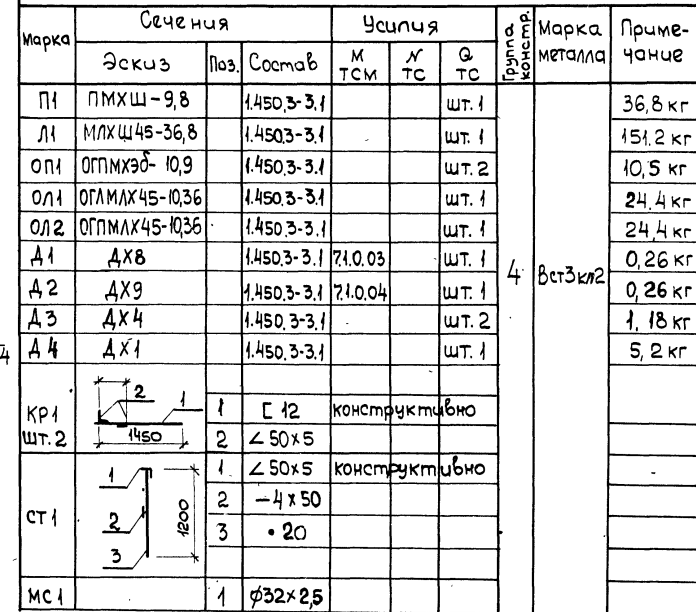 Марка Сечения Усилия Группа констр. Марка металла Примечание
Эскиз Поз. Состав М ТСМ N ТС Q ТС
П1 ПМХШ-9,8 1.450.3-3.1 шт. 1 36,8 кг
Л1 МЛХШ45-36,8 1.450.3-3.1 шт. 1 151.2 кг
ОП1 ОГПМХЭб-10,9 1.450.3-3.1 шт. 2 10,5 кг
ОЛ1 ОГЛМЛХ45-10,36 1.450.3-3.1 шт. 1 24.4 кг
ОЛ2 ОГПМЛХ45-10,36 1.450.3-3.1 шт. 1 24,4 кг
Д1 ДХ8 1.450.3-3.1 7.1.0.03 шт. 1 0,26 кг
4 Вст3кп2
Д2 ДХ9 1.450.3-3.1 7.1.0.04 шт. 1 0,26 кг
Д3 ДХ4 1.450.3-3.1 шт. 2 1,18 кг
4 Д4 ДХ1 1.450.3-3.1 шт. 1 5,2 кг
КР1 шт. 2 2 1 1450
1 [ 12 конструктивно -
2 ∠ 50×5 -
СТ1 1 2 3 1200
1 ∠ 50×5 конструктивно -
2 -4×50 -
3 • 20 -
МС1 1 ϕ32×2,5